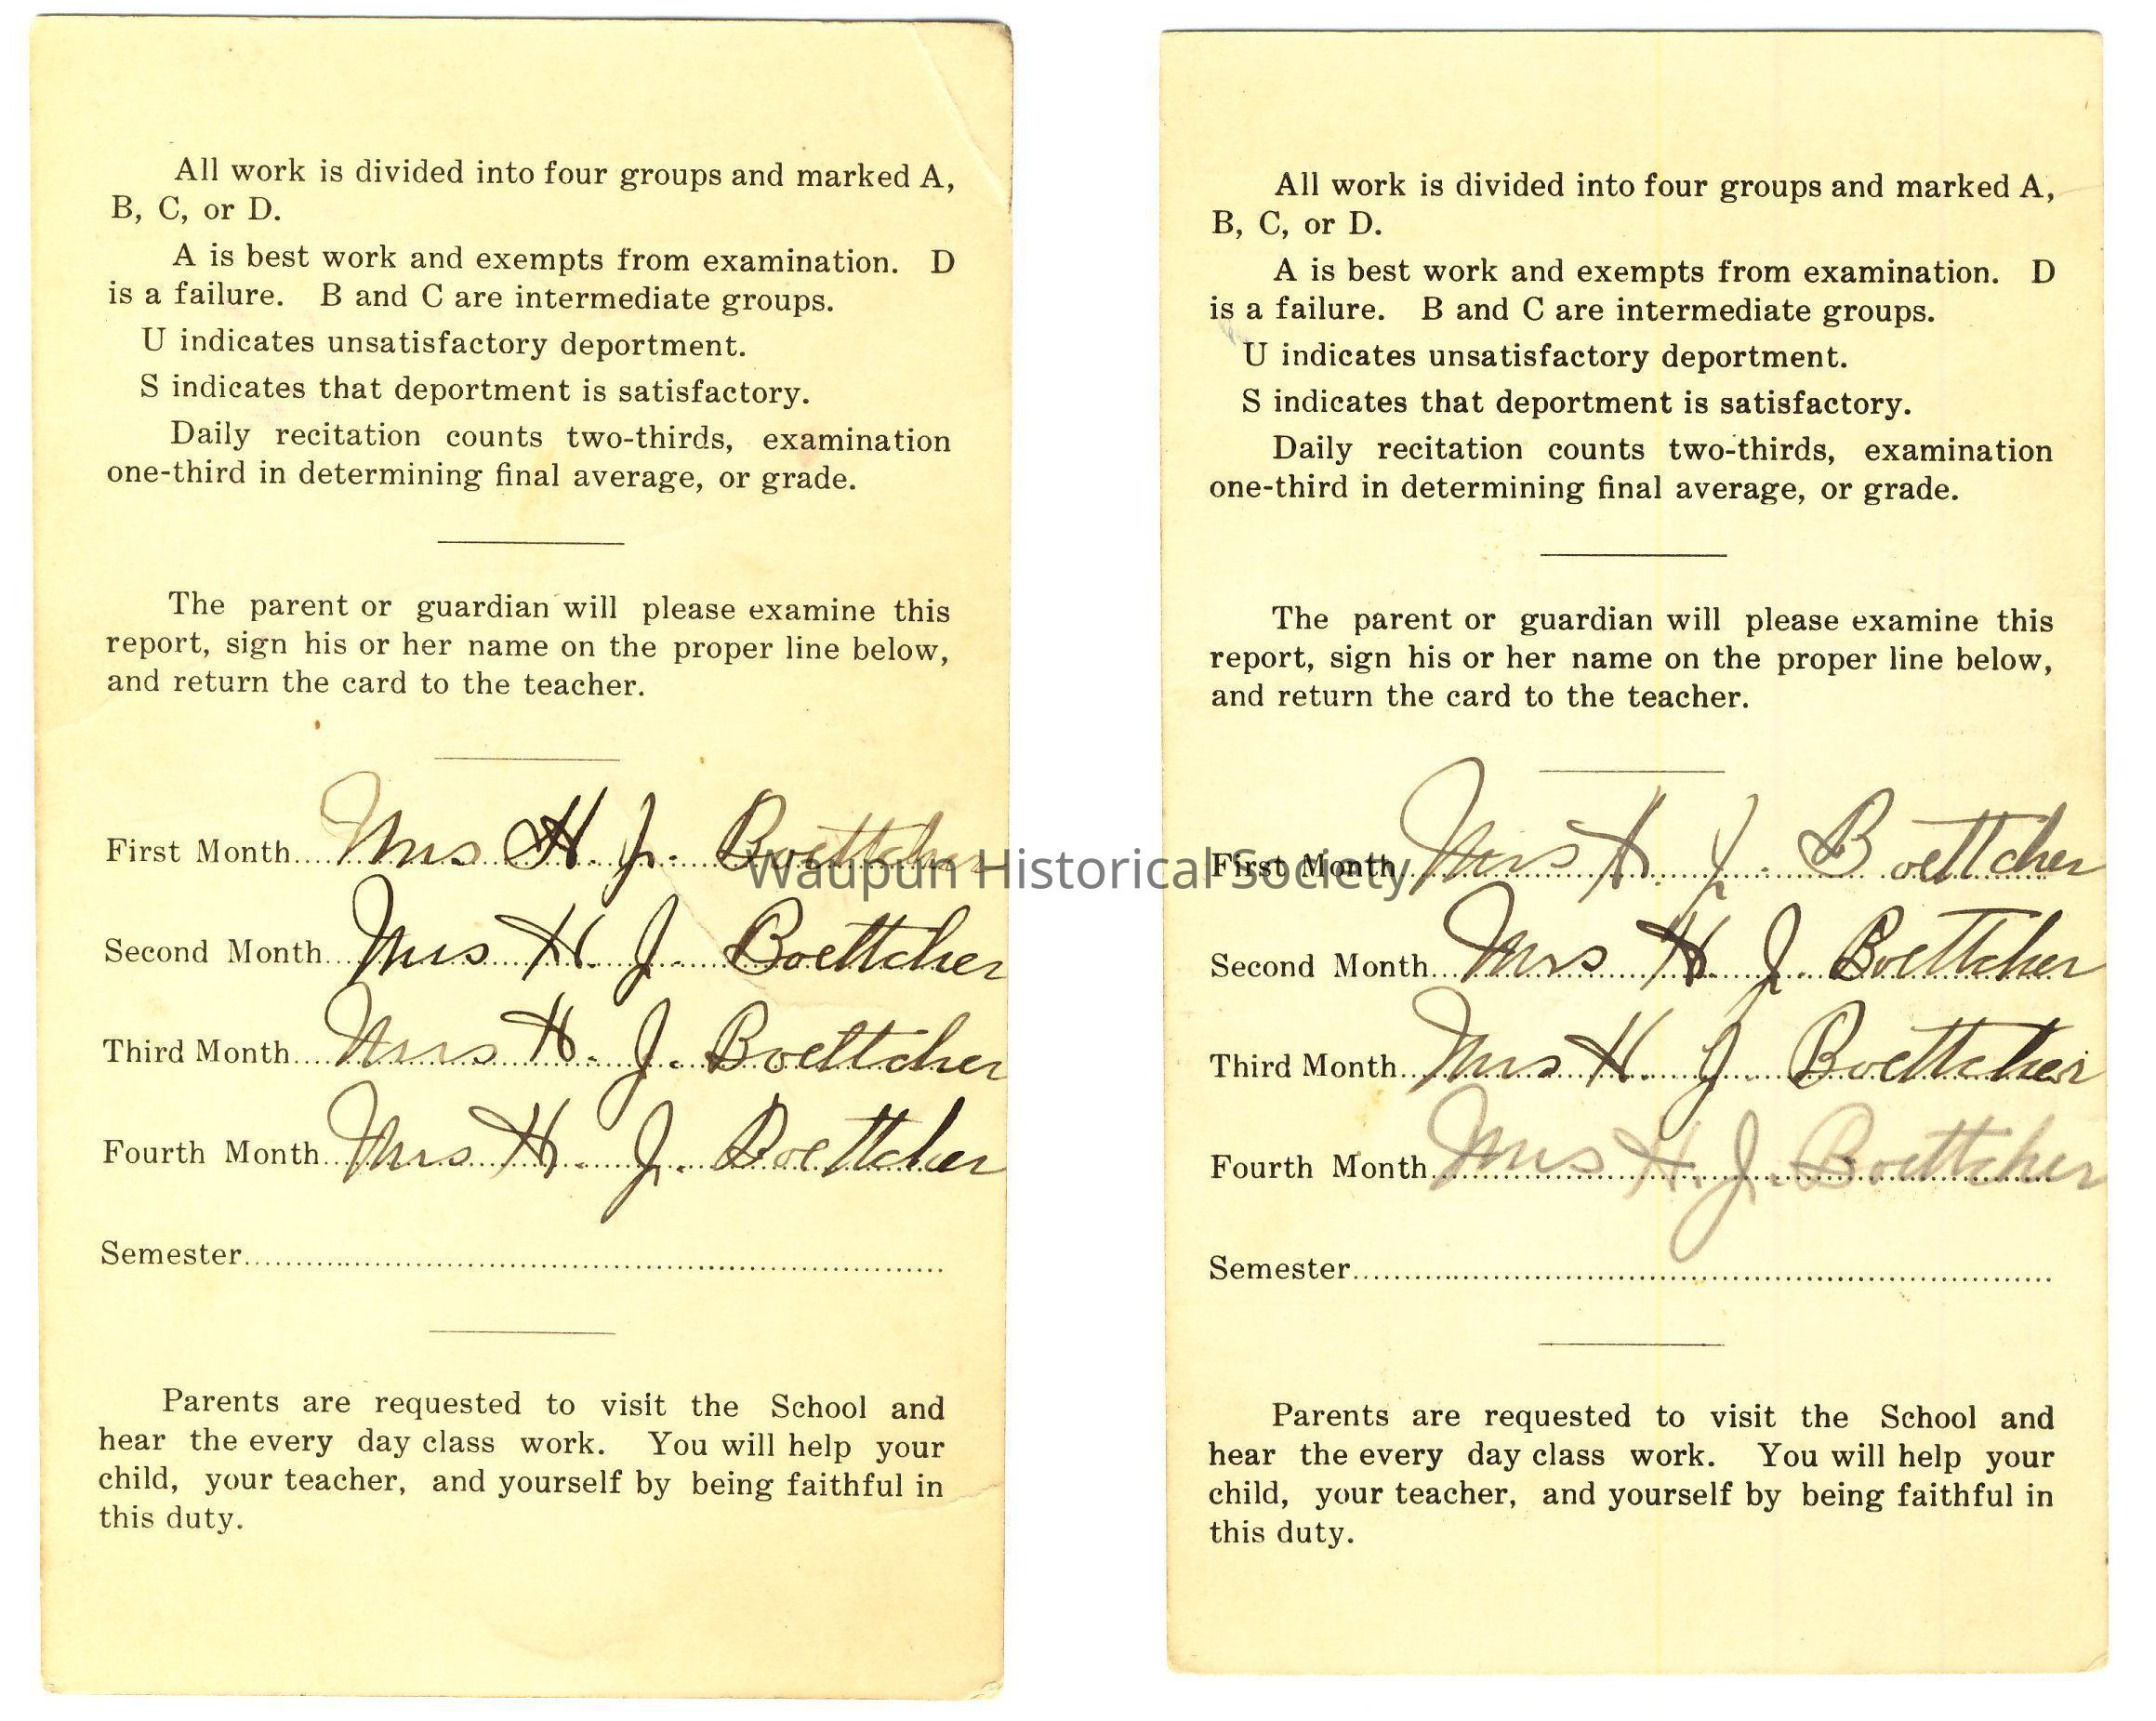 All work is divided into four groups and marked A,
B, C, or D.
A is best work and exempts from examination. D
is a failure. B and C are intermediate groups.
U indicates unsatisfactory deportment.
S indicates that deportment is satisfactory.
Daily recitation counts two-thirds, examination
one-third in determining final average, or grade.
The parent or guardian will please examine this
report, sign his or her name on the proper line below,
and return the card to the teacher.
First Month Mrs H. J. Boettcher
Second Month Mrs H. J. Boettcher
Third Month Mrs H. J. Boettcher
Fourth Month Mrs H. J. Boettcher
Semester
Parents are requested to visit the School and
hear the every day class work. You will help your
child, your teacher, and yourself by being faithful in
this duty.
All work is divided into four groups and marked A,
B, C, or D.
A is best work and exempts from examination. D
is a failure. B and C are intermediate groups.
U indicates unsatisfactory deportment.
S indicates that deportment is satisfactory.
Daily recitation counts two-thirds, examination
one-third in determining final average, or grade.
The parent or guardian will please examine this
report, sign his or her name on the proper line below,
and return the card to the teacher.
First Month Mrs H. J. Boettcher
Second Month Mrs H. J. Boettcher
Third Month Mrs H. J. Boettcher
Fourth Month Mrs H. J. Boettcher
Semester
Parents are requested to visit the School and
hear the every day class work. You will help your
child, your teacher, and yourself by being faithful in
this duty.
Waupun Historical Society